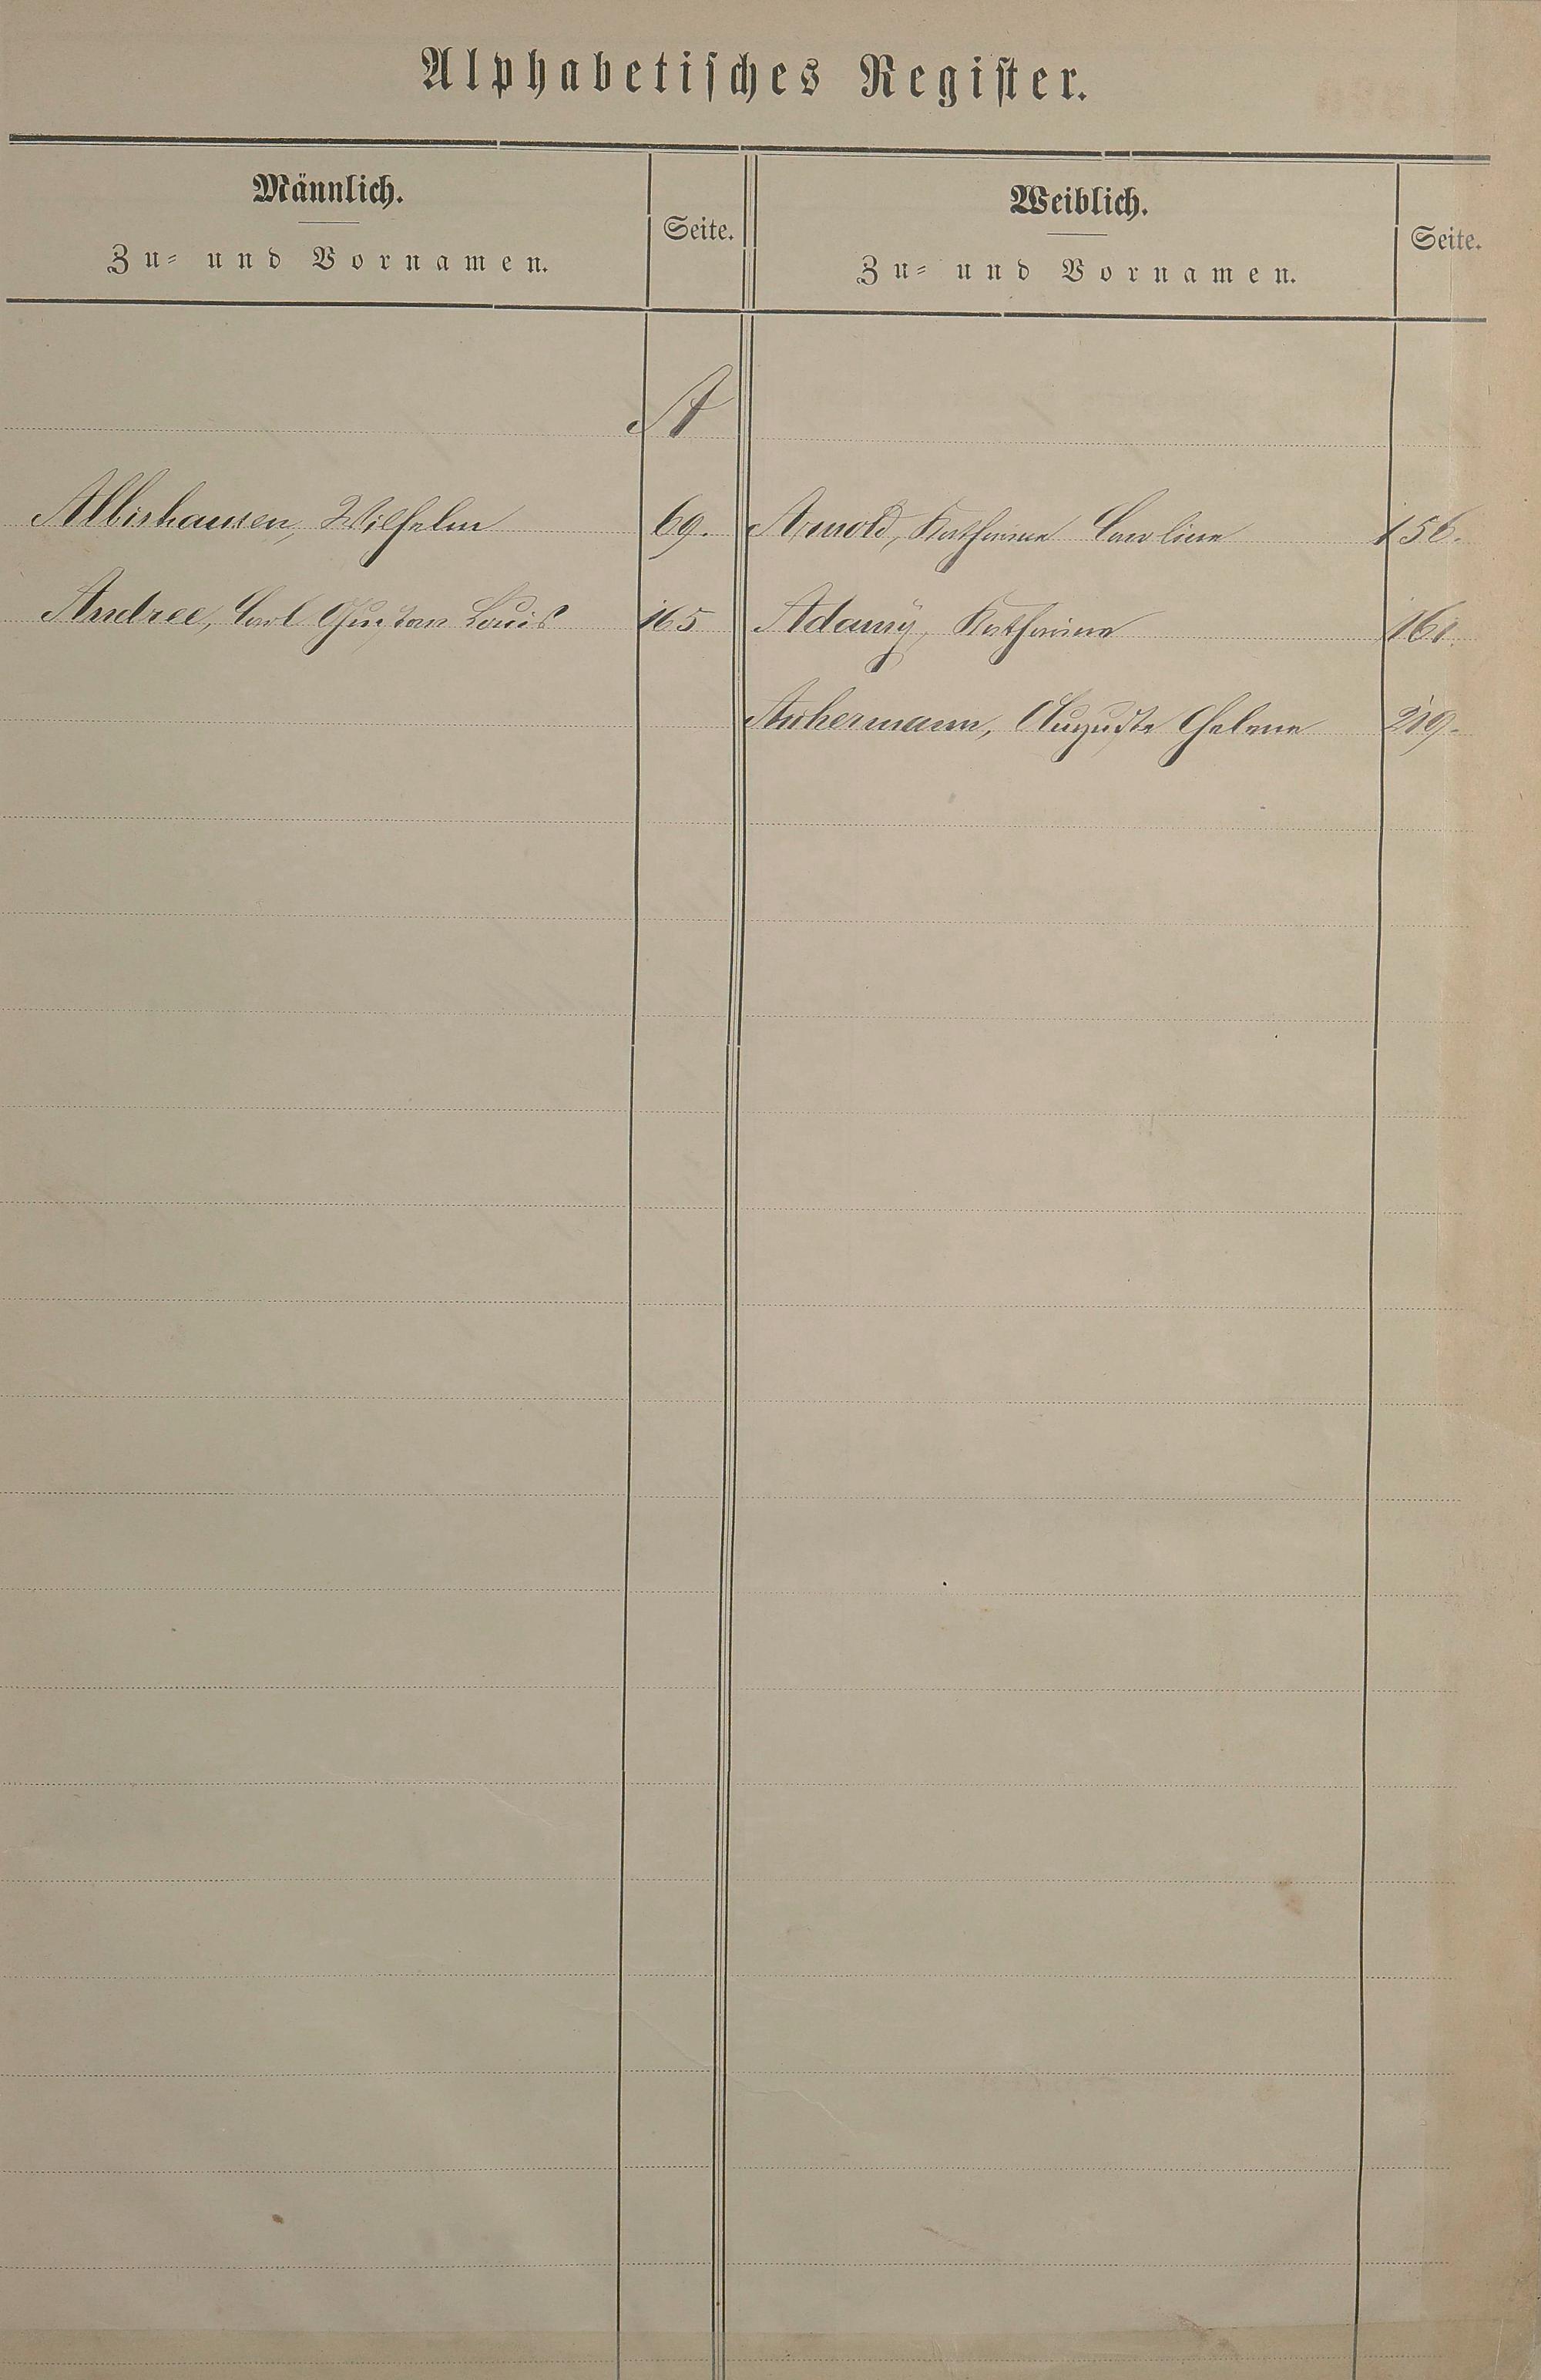 Alphabetisches Register.
Männlich. Seite. Weiblich. Seite.
Zu- und Vornamen. Zu- und Vornamen.
A
Albishausen, Wilhelm 69. Arnold, Katharina Carolina 156.
Andree, Carl Gustav Louis 165 Adamÿ, Katharina 161.
Ankermann, Auguste Helene 219.